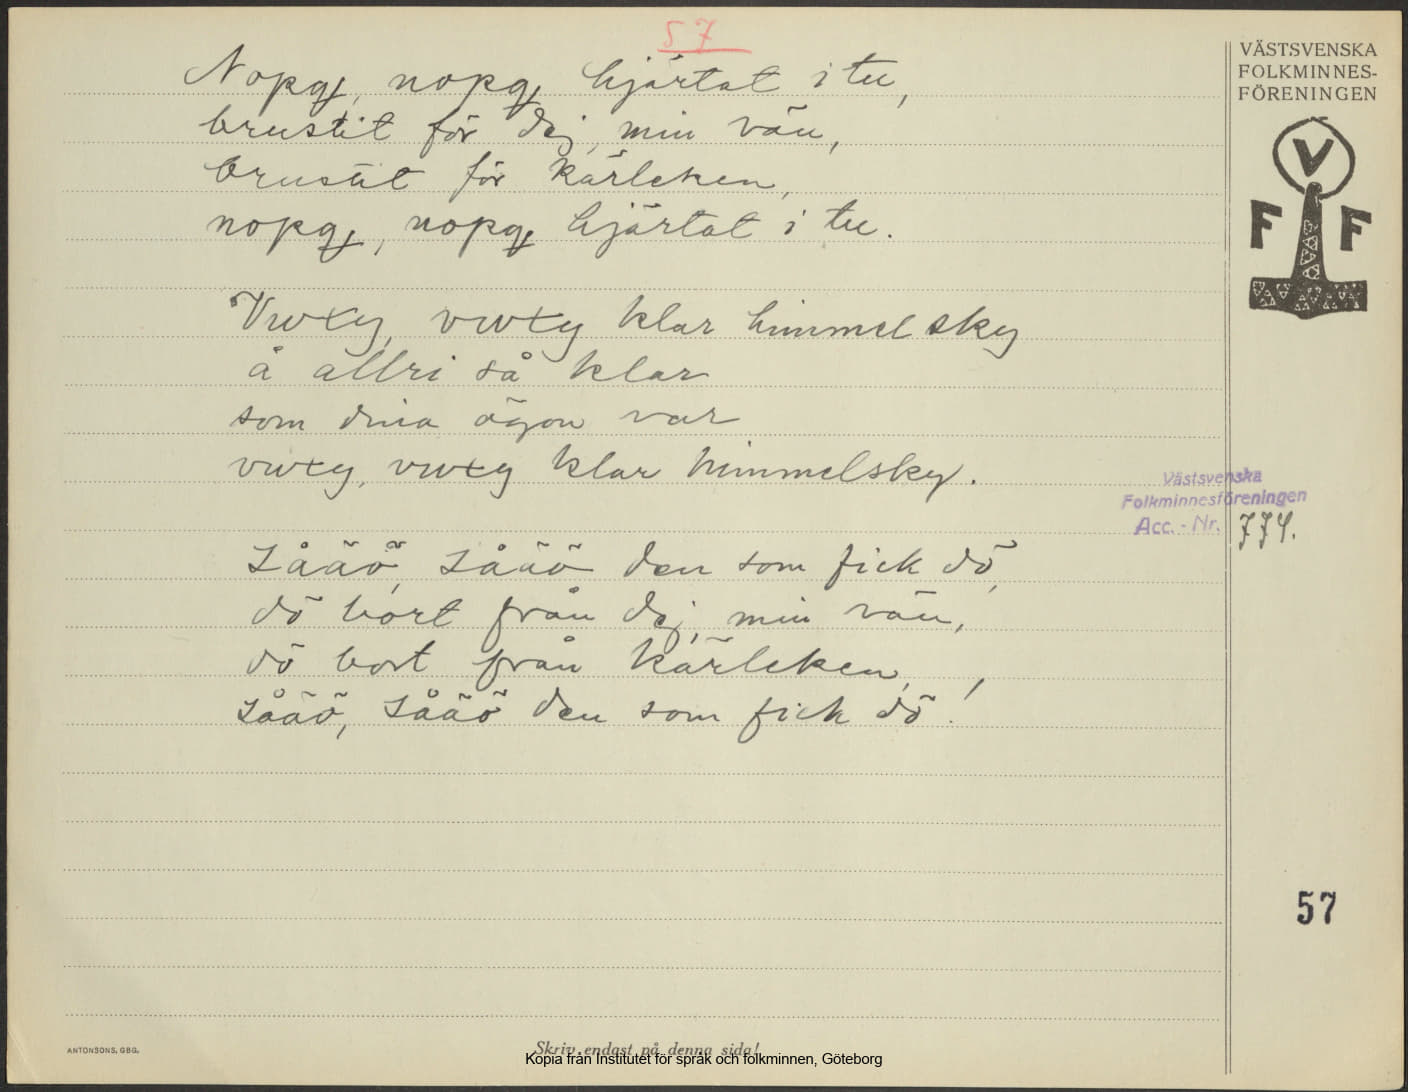 57
Nopq, nopq, hjärtat i tu,
brustit för dej, min vän,
brustit för kärleken,
nopq, nopq, hjärtat i tu.
Vwxy, vwxy klar himmelsky
å allri så klar
som dina ögon var
vwxy, vwxy klar himmelsky.
zåäö, zåäö den som fick dö,
dö bort från dej, min vän,
dö bort från kärleken,
zåäö, zåäö den som fick dö!
VÄSTSVENSKA
FOLKMINNES-
FÖRENINGEN
V
F F
Västsvenska
Folkminnesföreningen
Acc. - Nr. 774.
57
ANTONSONS, GBG.
Skriv endast på denna sida!
Kopia från Institutet för språk och folkminnen, Göteborg